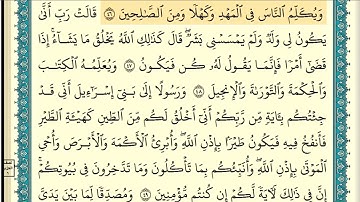 وَيُكَلِّمُ ٱلنَّاسَ فِي ٱلْمَهْدِ وَكَهْلًا وَمِنَ ٱلصَّٰلِحِينَ ٤٦ قَالَتْ رَبِّ أَنَّىٰ
يَكُونُ لِي وَلَدٌ وَلَمْ يَمْسَسْنِي بَشَرٌ ۖ قَالَ كَذَٰلِكِ ٱللَّهُ يَخْلُقُ مَا يَشَآءُ ۚ إِذَا
قَضَىٰٓ أَمْرًا فَإِنَّمَا يَقُولُ لَهُۥ كُن فَيَكُونُ ٤٧ وَيُعَلِّمُهُ ٱلْكِتَٰبَ
وَٱلْحِكْمَةَ وَٱلتَّوْرَىٰةَ وَٱلْإِنجِيلَ ٤٨ وَرَسُولًا إِلَىٰ بَنِيٓ إِسْرَٰٓءِيلَ أَنِّي قَدْ
جِئْتُكُم بِـَٔايَةٍ مِّن رَّبِّكُمْ أَنِّيٓ أَخْلُقُ لَكُم مِّنَ ٱلطِّينِ كَهَيْـَٔةِ ٱلطَّيْرِ
فَأَنفُخُ فِيهِ فَيَكُونُ طَيْرًۢا بِإِذْنِ ٱللَّهِ ۖ وَأُبْرِئُ ٱلْأَكْمَهَ وَٱلْأَبْرَصَ وَأُحْيِ
ٱلْمَوْتَىٰ بِإِذْنِ ٱللَّهِ ۖ وَأُنَبِّئُكُم بِمَا تَأْكُلُونَ وَمَا تَدَّخِرُونَ فِي بُيُوتِكُمْ ۚ
إِنَّ فِي ذَٰلِكَ لَـَٔايَةً لَّكُمْ إِن كُنتُم مُّؤْمِنِينَ ٤٩ وَمُصَدِّقًا لِّمَا بَيْنَ يَدَيَّ